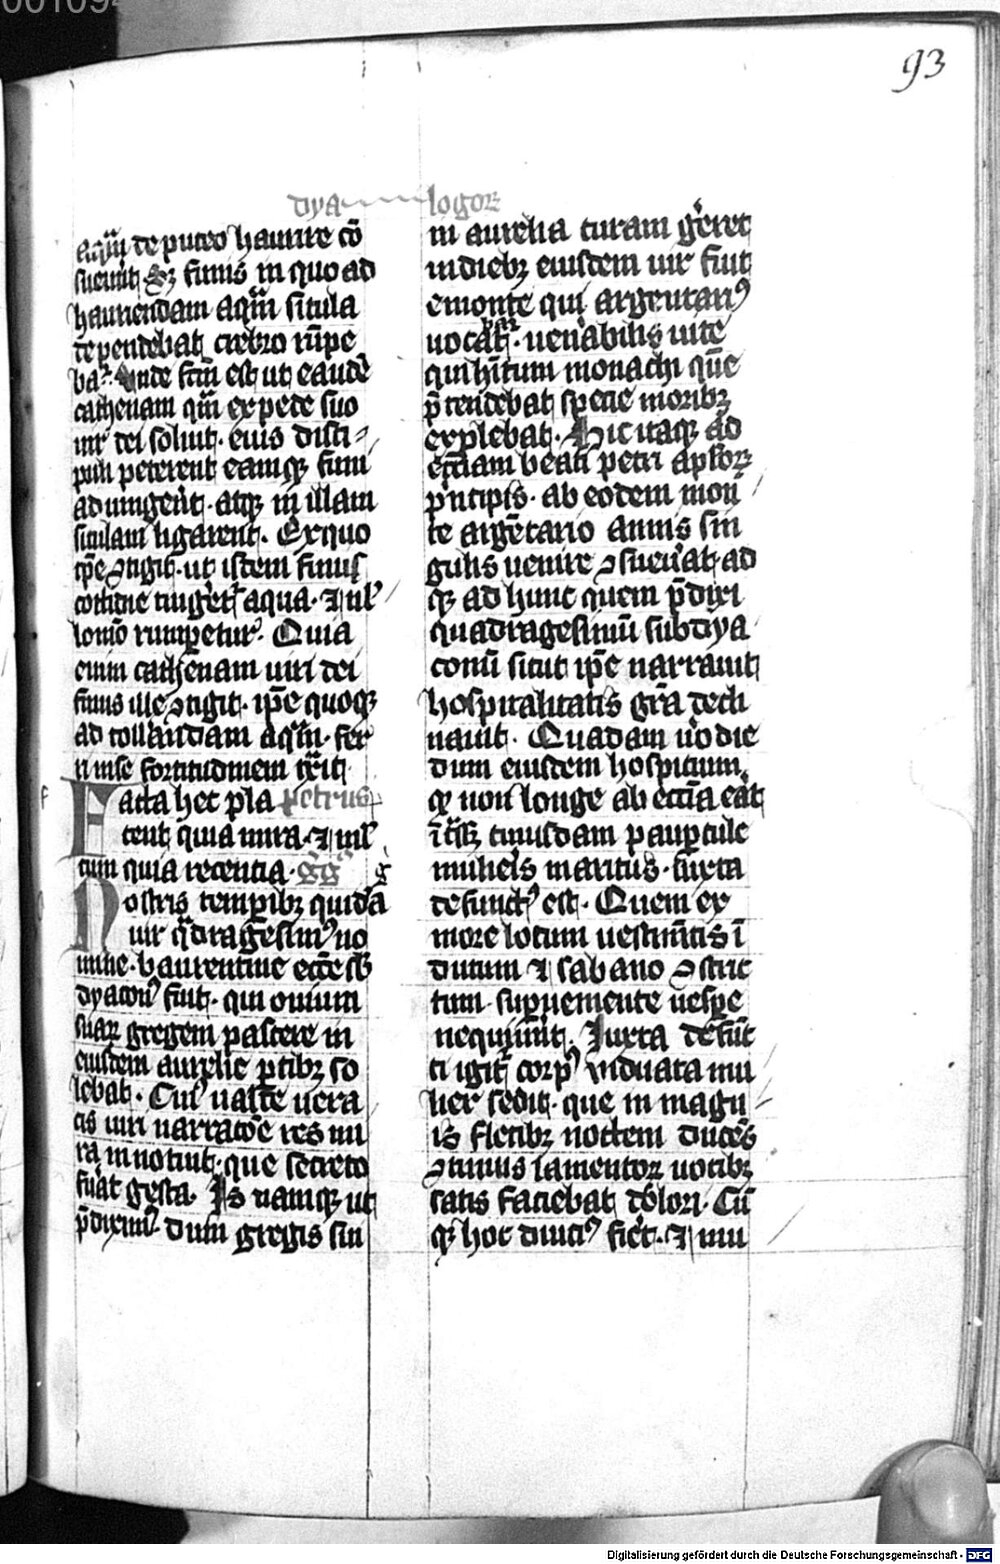 93
dya logorꝫ
aqᷓm de puteo haurire cō
sueuit Sꝫ funis in quo ad
hauriendam aqᷓm situla
dependebat crebro rūpe
bat᷑. Unde fcm̄ est ut eandē
cathenam qm̄ ex pede suo
uir dei soluit. eius disci⸗
puli peterent eamqꝫ funi
adiungerēt. atqꝫ in illam
situlam ligarent. Ex quo
tp̄e ↄtigit. ut istem funis
cottidie tingeret᷑ aqua. ⁊ nl̄
lomō rumperetur. Quia
enim cathenam uiri dei
funis ille ↄtigit. ip̄e quoqꝫ
ad tollandam aqᷓm. fer
ri in se fortitudinem tx̄it
Facta hec pla petrus
cent quia mira. ⁊ ml̄
tum quia recentia. gg̅ g
Nostris temꝑibꝫ quidā
uir qᷓdragesimꝰ no
mine. baurentine ecc̄e sb̄
dyaconꝰ fuit. qui ouium
suarꝫ gregem pascere in
eiusdem aurelie ꝑtibꝫ so
lebat. Cuiꝰ ualde uera
cis uiri narracōe res mi
ra innotuit. que secreto
fuāt gesta. Is namqꝫ ut
p̄diximꝰ dum gregis sui
in aurelia curam gēret
in diebꝫ eiusdem uir fuit
e monte qui argentariꝰ
uocat᷑. uen̄abilis uite
qui hītum monachi qūe
p̄tendebat specie moribꝫ
explebat. Hic itaqꝫ ad
eccl̄iam beati petri apłorꝫ
p̄ncipis. ab eodem mon
te argētario annis sin
gulis uenire ↄsueuāt ad
qꝫ ad hunc quem p̄dixi
quadragesimū subdya
conū sicut ip̄e narrauit
hospitalitatis grā decli
nauit. Quadam ūo die
dum eiusdem hospitium,
qꝫ non longe ab ecc̄ia eāt
īt̄sꝫ cuiusdam pauꝑcule
muliēis maritus. iuxta
defunctꝰ est. Quem ex
more lotum uestimītis ī
dutum ⁊ sabano ↄstric
tum. suꝑueniente uesꝑe
nequiūnt. Iuxta defūc
ti igit᷑ corpꝰ viduata mu
lier sedit. que in magn
is fletibꝫ noctem ducēs
ↄtinuis lamentorꝫ uocibꝫ
satis faciebat dolori. Cū
qꝫ hoc diuciꝰ fiēt. ⁊ mu
Digitalisierung gefördert durch die Deutsche Forschungsgemeinschaft - DFG